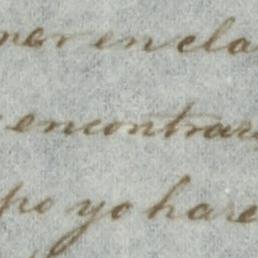 en cla
encontrar
po yo hare